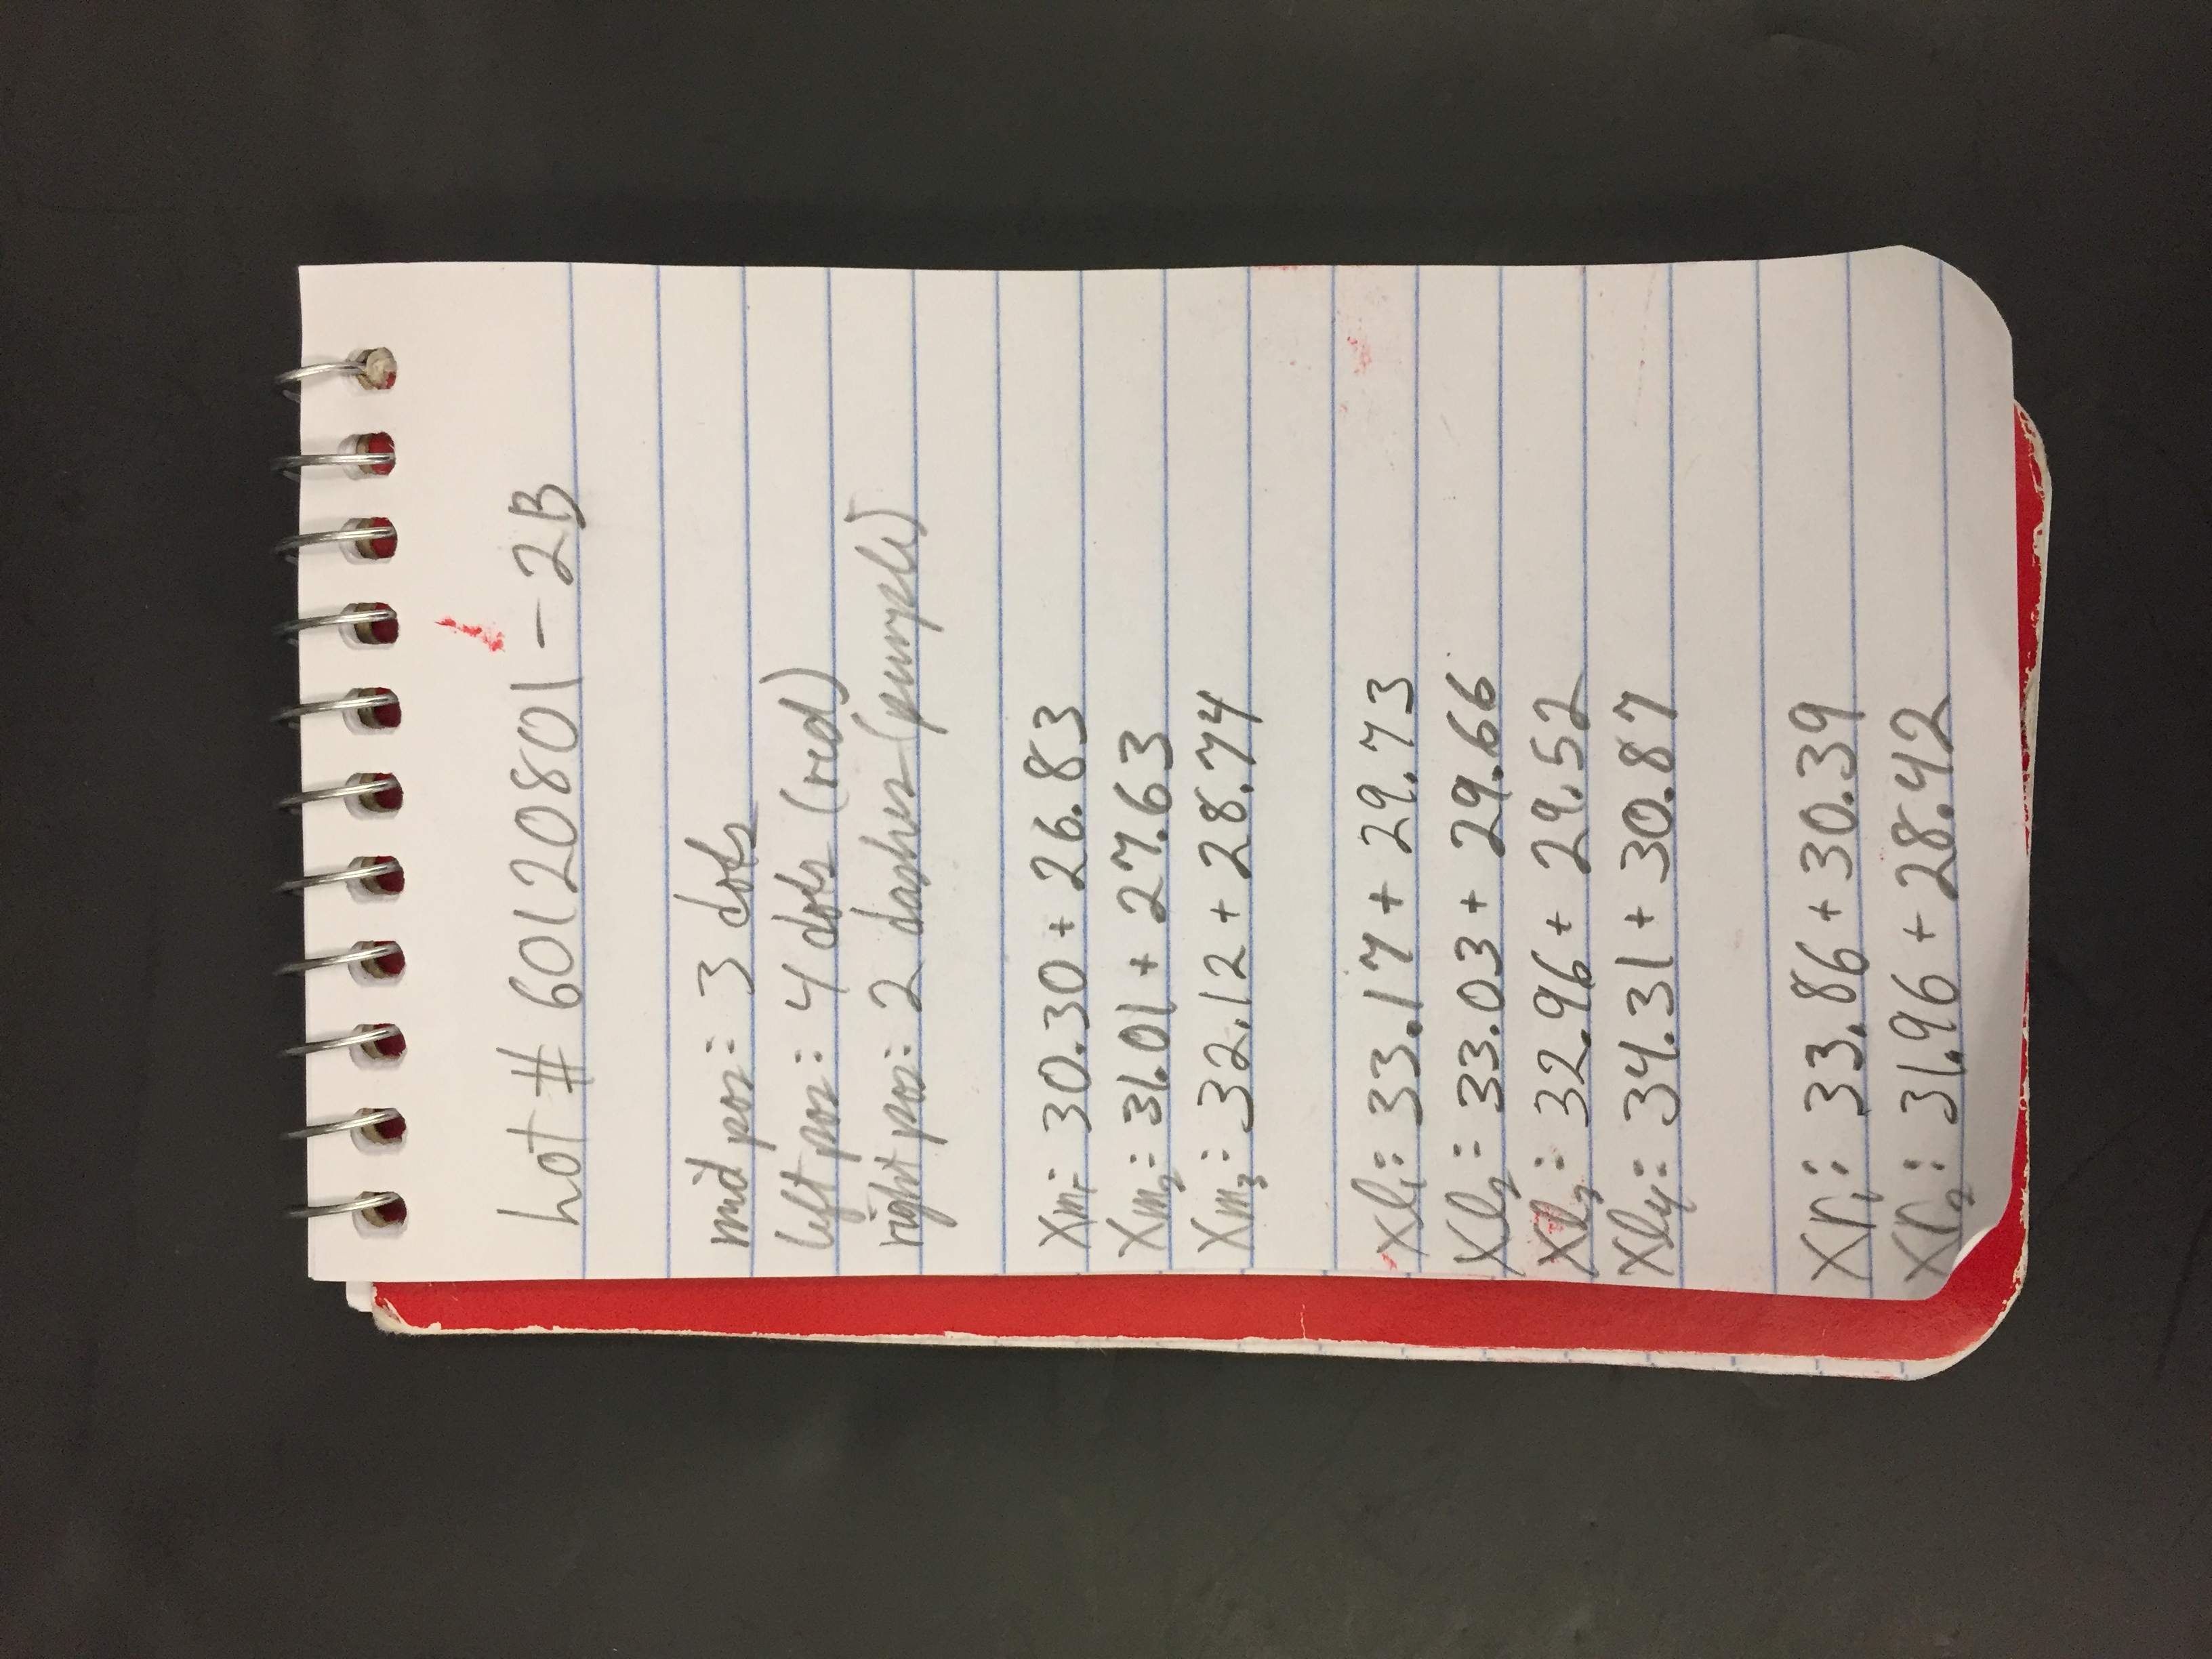 Lot # 60120801-2B
mid pos: 3 dots
left pos: 4 dots (red)
right pos: 2 dashes (purple)
Xm₁: 30.30 + 26.83
Xm₂: 31.01 + 27.63
Xm₃: 32.12 + 28.74
Xl₁: 33.17 + 29.73
Xl₂: 33.03 + 29.66
Xl₃: 32.96 + 29.52
Xl₄: 34.31 + 30.87
Xr₁: 33.86 + 30.39
Xr₂: 31.96 + 28.42